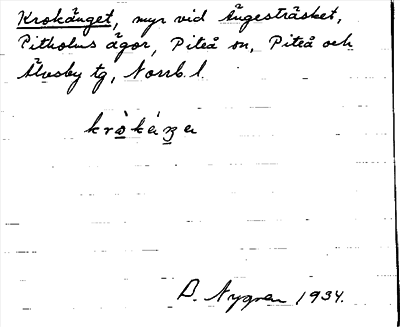 Krokänget, myr vid Ängesträsket,
Pitholms ägor, Piteå sn, Piteå och
Älvsby tg, Norrb. l.
B. Nygren 1934.